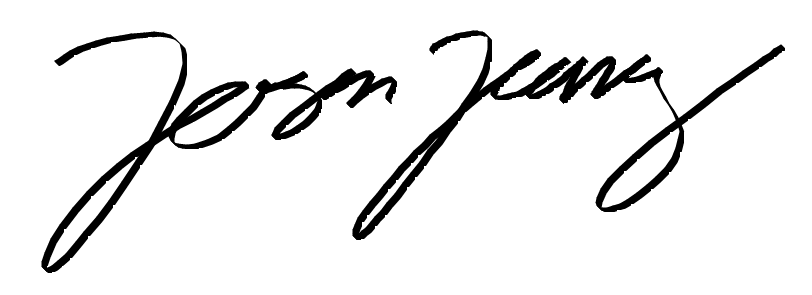 Jason Jeang